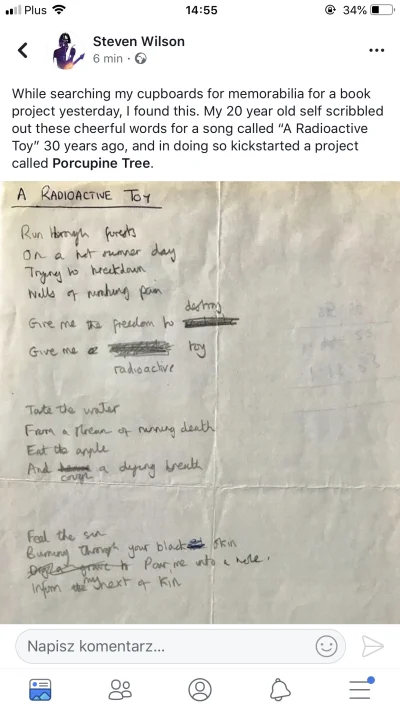 Plus 14:55 34%
Steven Wilson
6 min ·
While searching my cupboards for memorabilia for a book
project yesterday, I found this. My 20 year old self scribbled
out these cheerful words for a song called “A Radioactive
Toy” 30 years ago, and in doing so kickstarted a project
called Porcupine Tree.
A RADIOACTIVE TOY
Run through forests
On a hot summer day
Trying to breakdown
Walls of numbing pain
destroy
Give me the freedom to
Give me a toy
radioactive
Take the water
From a stream of running death
Eat the apple
And a dying breath
cough
Feel the sun
Burning through your black skin
Pour me into a hole.
my
Inform next of kin
Napisz komentarz...